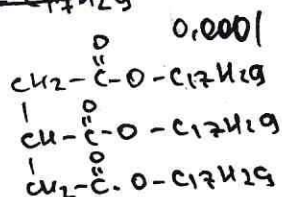 17H29
0,0001
O
CH2-C-O-C17H29
O
CH-C-O-C17H29
O
CH2-C.O-C17H29